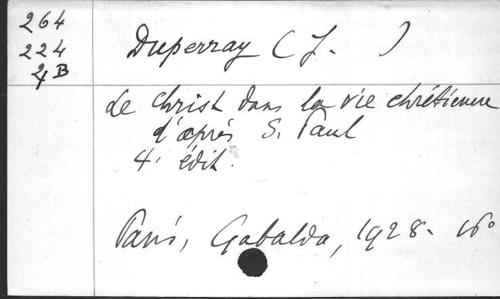 264
224
4B
Duperray (J. )
Le Christ dans la vie chrétienne
d'après S. Paul
4e édit.
Paris, Gabalda, 1928. 16°